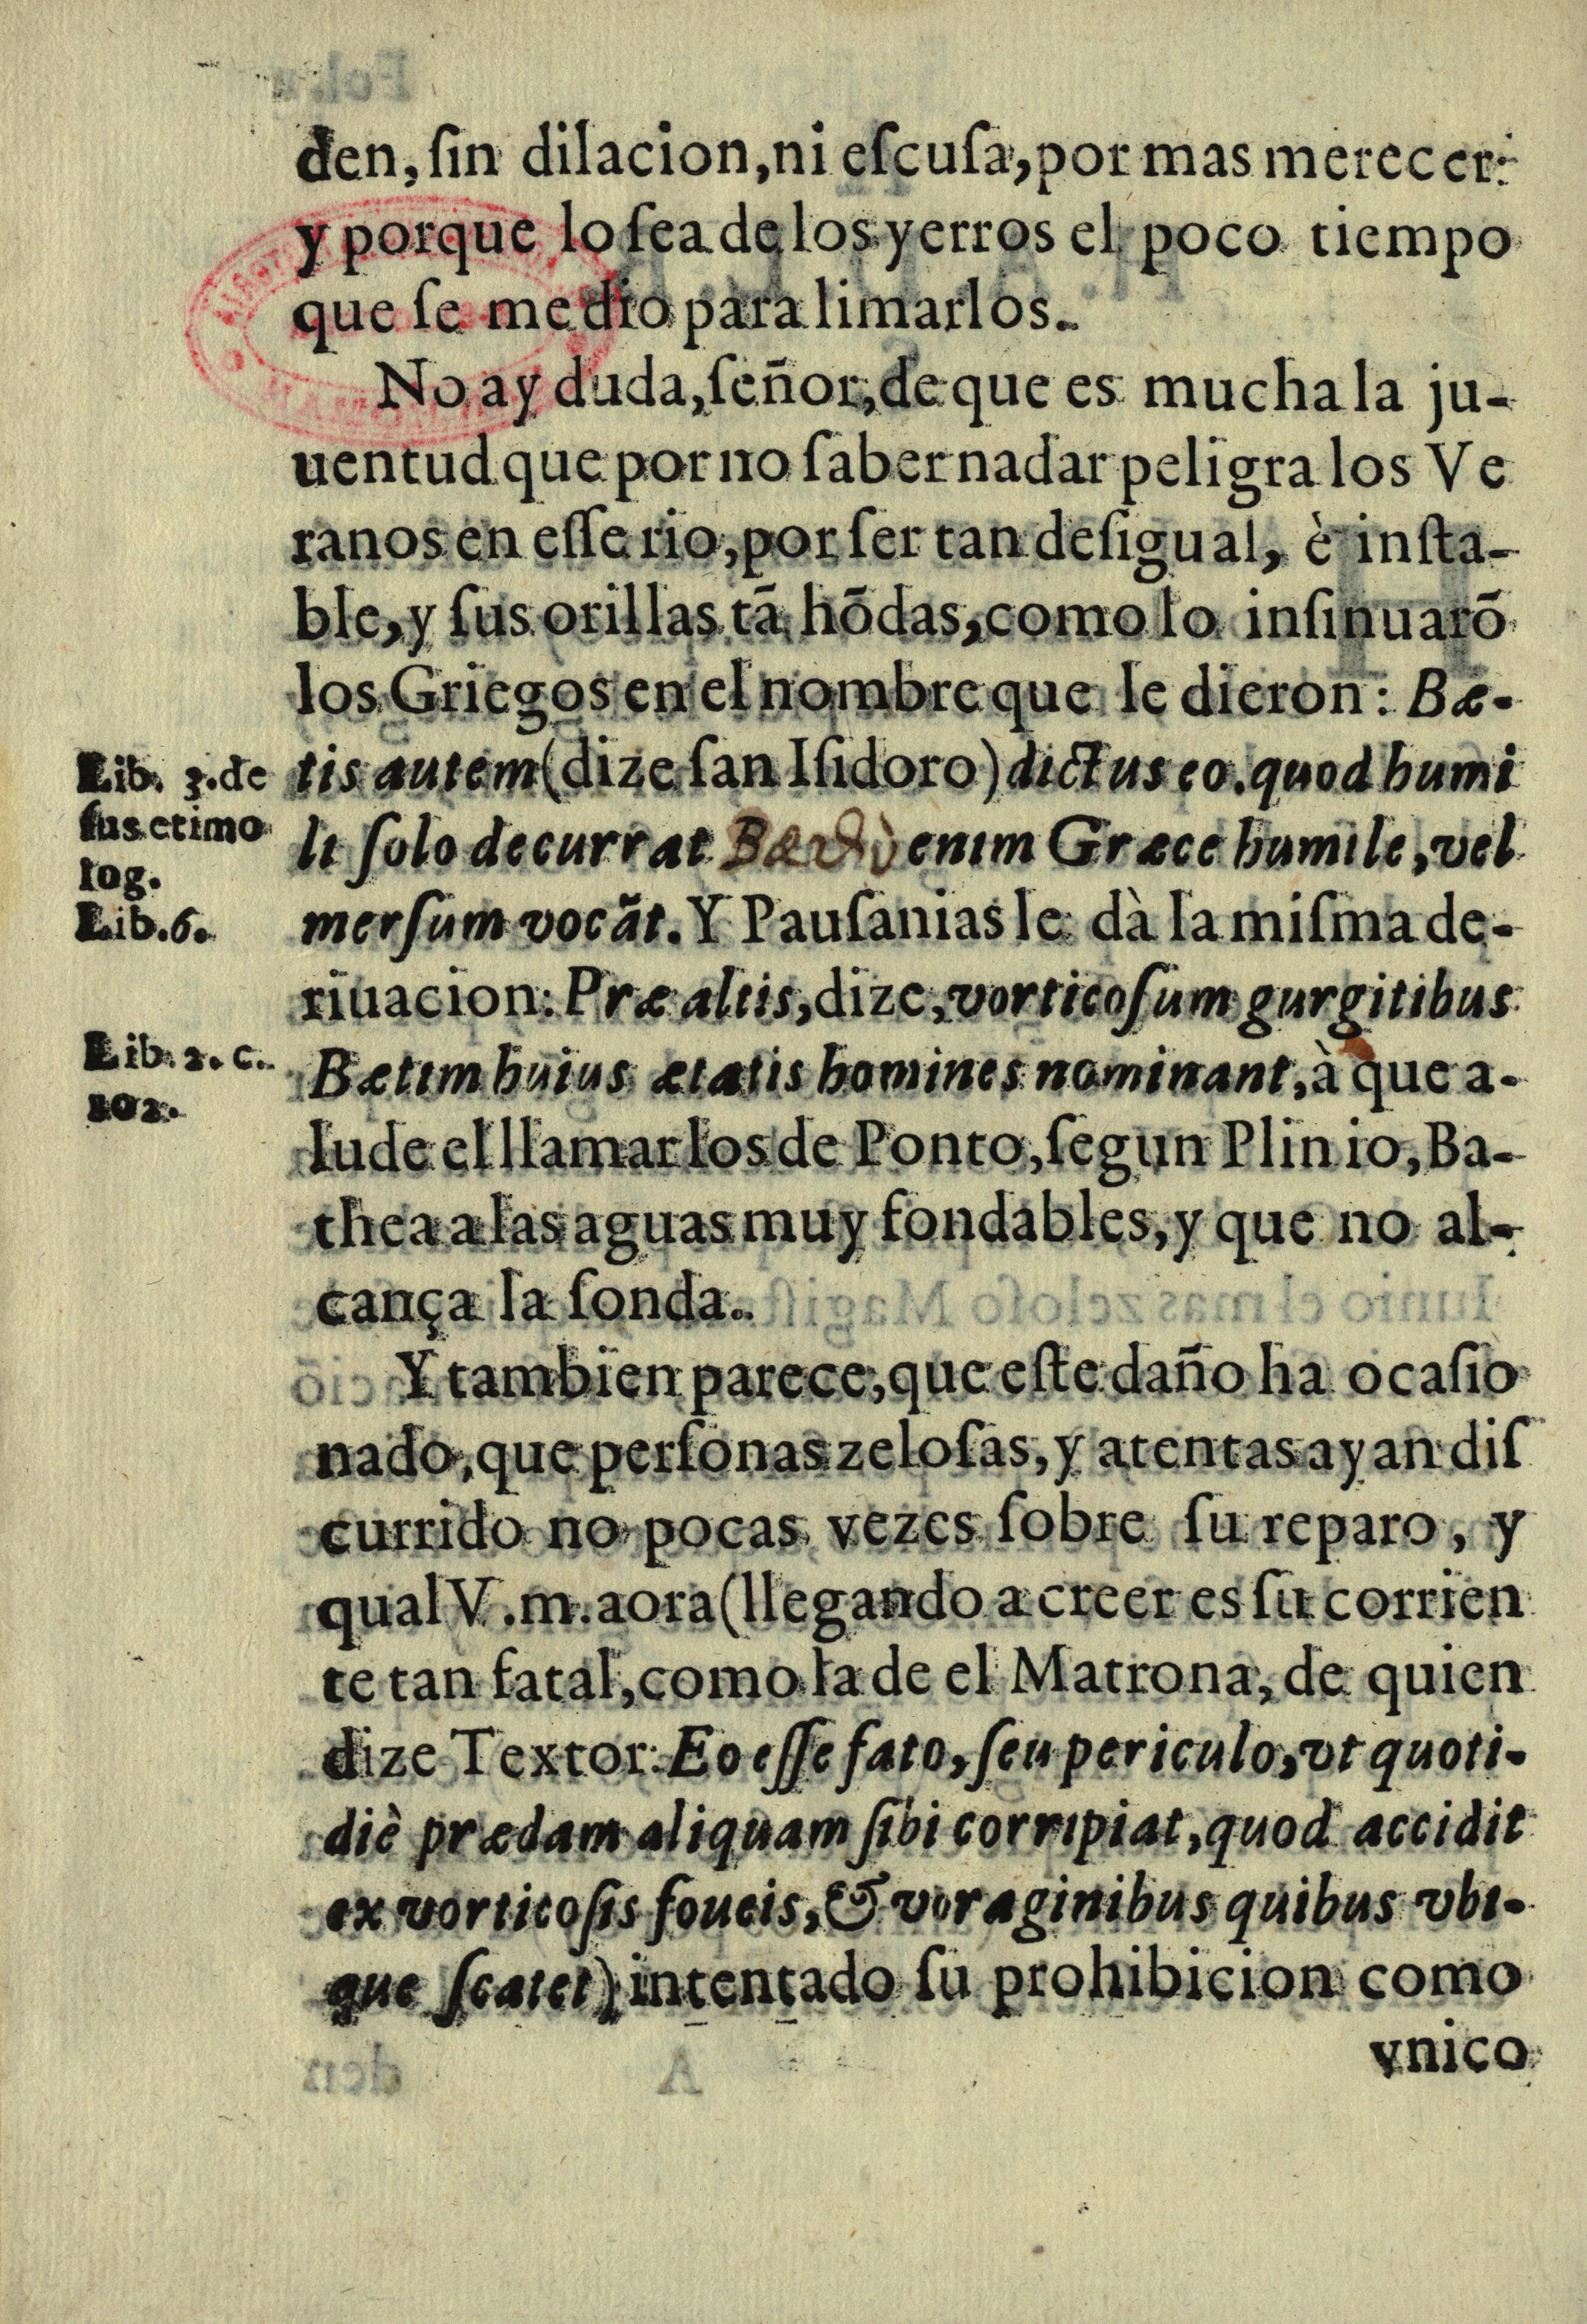 den, sin dilacion, ni escusa, por mas merecer:
y porque lo sea de los yerros el poco tiempo
que se me dio para limarlos.
No ay duda, señor, de que es mucha la ju-
uentud que por no saber nadar peligra los Ve
ranos en esse rio, por ser tan desigual, è insta-
ble, y sus orillas tã hõdas, como lo insinuarõ
los Griegos en el nombre que le dieron: Bæ-
tis autem (dize san Isidoro) dictus eo. quod humi
li solo decurrat enim Græce humile, vel
mersum vocãt. Y Pausanias le dà la misma de-
riuacion: Præ altis, dize, vorticosum gurgitibus
Bætim huius ætatis homines nominant, à que a-
lude el llamar los de Ponto, segun Plinio, Ba-
thea a las aguas muy fondables, y que no al-
cança la sonda.
Y tambien parece, que este daño ha ocasio
nado, que personas zelosas, y atentas ayan dis
currido no pocas vezes sobre su reparo, y
qual V.m. aora (llegando a creer es su corrien
te tan fatal, como la de el Matrona, de quien
dize Textor: Eo esse fato, seu periculo, vt quoti-
diè prædam aliquam sibi corripiat, quod accidit
ex vorticosis foueis, & voraginibus quibus vbi-
que scatet) intentado su prohibicion como
vnico
Lib. 3. de
sus etimo
log.
Lib. 6.
Lib. 2. c.
102.